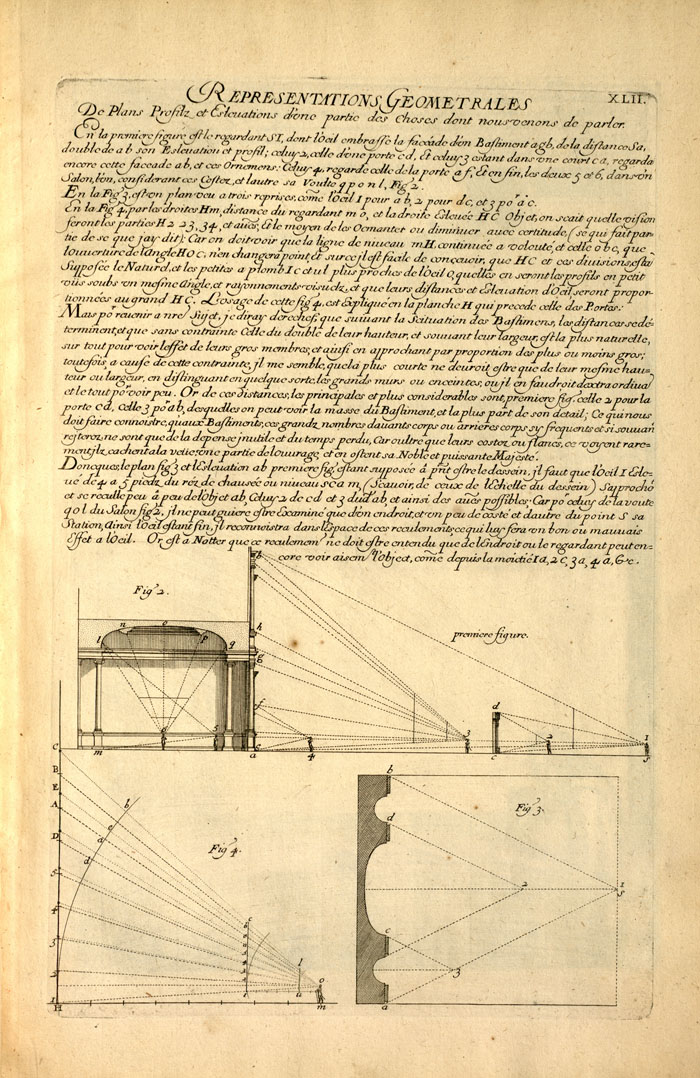 REPRESENTATIONS GEOMETRALES
XLII.
De Plans Profilz et Esleuations d'vne partie des choses dont nous venons de parler.
En la premiere figure est le regardant S I, dont l'oeil embrasse la faceade d'vn Bastiment a g b, de la distance S a,
double de a b son Esleuation et profil; celuy 2, celle d'vne porte c d, Et celuy 3 estant dans vne court c a, regarde
encore cette faceade a b, et ces Ornemens: Celuy 4, regarde celle de la porte a f, Et en fin, les deux 5 et 6, dans vn
Salon, l'vn, considerant ces Costez, et l'autre sa Voulte q p o n l, Fig. 2.
En la Fig. 3, est vn plan veu a trois reprises, come l'oeil 1 pour a b, 2 pour d c, et 3 po.r a c.
En la Fig. 4, par les droites H m, distance du regardant m o, et la droite Esleuée H C Objet, on scait quelle vision
feront les parties H 2 2 3, 3 4, et au.es, Et le moyen de les Ocmanter ou diminuer auec certitude, (se qui fait par-
tie de se que j'ay dit): Car on doit voir que la ligne de niueau m H, continuée a volonté, et celle o b c, que
l'ouuerture de l'Angle H O c, n'en changera point, et sur ce jl est facile de conceuoir, que H C et ces diuisions, estant
Supposée le Naturel, et les petites a plomb I C et u l plus proches de l'oeil O, quelles en seront les profils en petit
vûs soubs vn mesme Angle, et rayonnements visuelz, et que leurs distances et Esleuation d'Oeil seront propor-
tionnées au grand H C. L'vsage de cette fig. 4, est Expliqué en la planche H qui precede celle des Portes.
Mais po.r reuenir a n.re Sujet, je diray derechef, que suiuant la Scituation des Bastimens, les distances se dé-
terminent, et que sans contrainte Celle du double de leur hauteur, et souuant leur largeur, est la plus naturelle,
sur tout pour voir l'effét de leurs gros membres, et ainsi en approchant par proportion des plus ou moins gros;
toutefois, a cause de cette contrainte, jl me semble, que la plus courte ne deuroit estre que de leur mesme hau-
teur ou largeur, en distinguant en quelque sorte, les grands murs ou enceintes, ou jl en faudroit d'extraordina.re
et le tout po.r voir peu. Or de ces distances, les principales et plus considerables sont, premiere fig. celle 2 pour la
porte c d, celle 3 po.r a b, desquelles on peut voir la masse du Bastiment, et la plus part de son detail; Ce qui nous
doit faire connoistre, qu'aux Bastiments, ces grandz nombres d'auants corps ou arrieres corps sy frequents et si souuan
rejterez, ne sont que de la depense jnutile et du temps perdu, Car outre que leurs costez ou flancs, ce voyent rare-
ment, jlz cachent a la veüe, vne partie de l'ouurage, et en ostent sa Noble et puissante Majesté.
Doncques le plan fig. 3 et l'Esleuation a b premiere fig. estant supposée a p.nt estre le dessein, jl faut que l'oeil I Esle-
ué de 4 a 5 piedz du réz de chausée ou niueau s c a m, (Scauoir, de ceux de l'Echelle du dessein) S'aproche
et se reculle peu à peu de l'objet a b, Celuy 2 de c d et 3 dud. a b, et ainsi des au.es possibles, Car po.r celuy de la voute
q o l du Salon fig. 2, jl ne peut guiere estre Examiné que d'vn endroit, et vn peu de costé et d'autre du point S sa
Station, Ainsi l'oeil estant fin, jl reconnoistra dans l'Espace de ces reculements ce qui luy fera vn bon ou mauuais
Effét a l'oeil. Or est a Notter que ce reculement ne doit estre entendu que de l'endroit ou le regardant peut en-
core voir aisem.t l'object, come depuis la moictié 1 a, 2 c, 3 a, 4 a, & c.
Fig. 2.
premiere figure.
n o p
l q
6 5
m
b
h
g
f
a
4
3
d
c
2
1
S
C
B
E
A
D
5
4
3
2
1
H
b
e
a
d
Fig. 4.
c
l
u
o
m
b
d
c
a
Fig. 3.
2
1
S
3